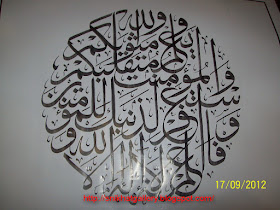 فاعلم أنه لا إله إلا الله
واستغفر لذنبك وللمؤمنين
والمؤمنات والله يعلم متقلبكم
ومثواكم
17/09/2012